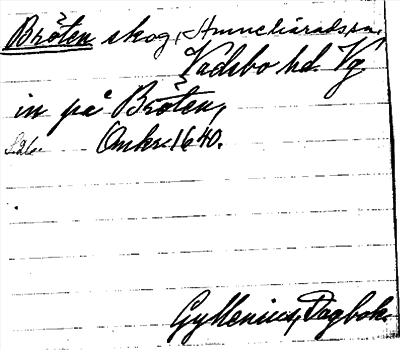 Bröten skog,
Vadsbo hd. Vg
in på Bröten,
Omkr. 1640.
Gyllenius, Dagbok.